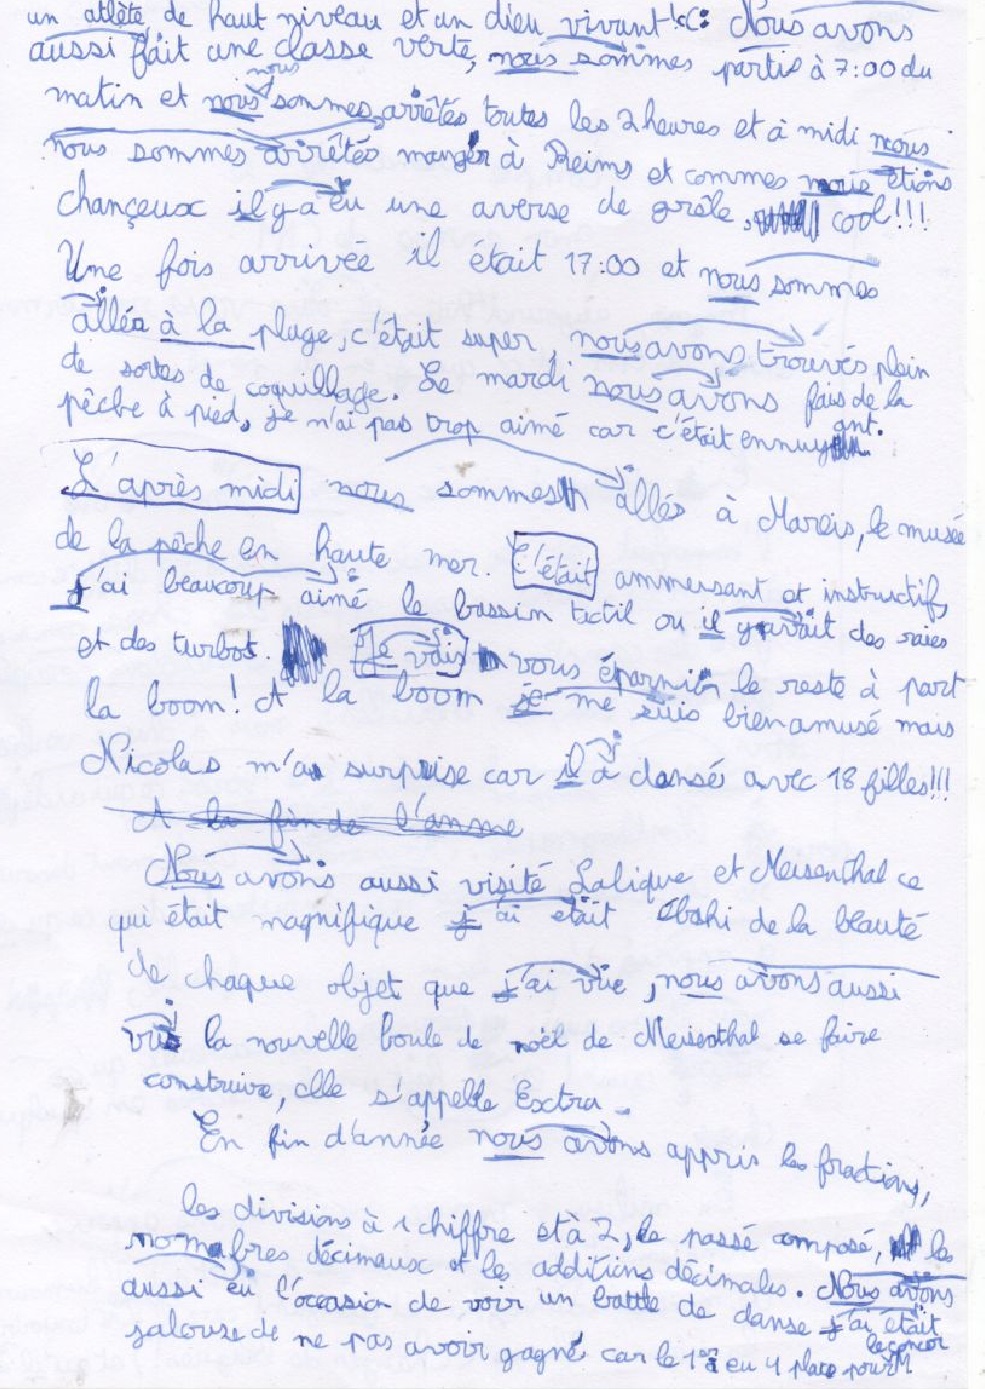 un atlète de haut niveau et un dieu vivant !cc: Nous avons
aussi fait une classe verte, nous sommes partis à 7:00 du
nous
matin et nous sommes arrêtés toutes les 2 heures et à midi nous
nous sommes arrêtés manger à Reims et commes nous étions
chançeux il y a eu une averse de grêle. cool!!!
Une fois arrivée il était 17:00 et nous sommes
allés à la plage, c'était super, nous avons trouvés plein
de sortes de coquillage. Le mardi nous avons fais de la
pêche à pied, je n'ai pas trop aimé car c'était ennuyant.
L'après midi nous sommes allés à Mareis, le musée
de la pêche en haute mer. C'était ammusant et instructif,
j'ai beaucoup aimé le bassin tactil ou il y avait des raies
et des turbot. Je vais vous éparnier le reste à part
la boom! A la boom je me suis bien amusé mais
Nicolas m'a surprise car il a dansé avec 18 filles!!!
A la fin de l'anne
Nous avons aussi visité Lalique et Meisenthal ce
qui était magnifique j'ai était ébahi de la beauté
de chaque objet que j'ai vue, nous avons aussi
vus la nouvelle boule de noël de Meisenthal se faire
construire, elle s'appelle Exctra.
En fin d'année nous avons appris les fractions,
les divisions à 1 chiffre et à 2, le passé composé, le
nombres décimaux et les additions décimales. Nous avons
aussi eu l'occasion de voir un battle de danse j'ai était
jalouse de ne pas avoir gagné car le 1er a eu 4 place pour